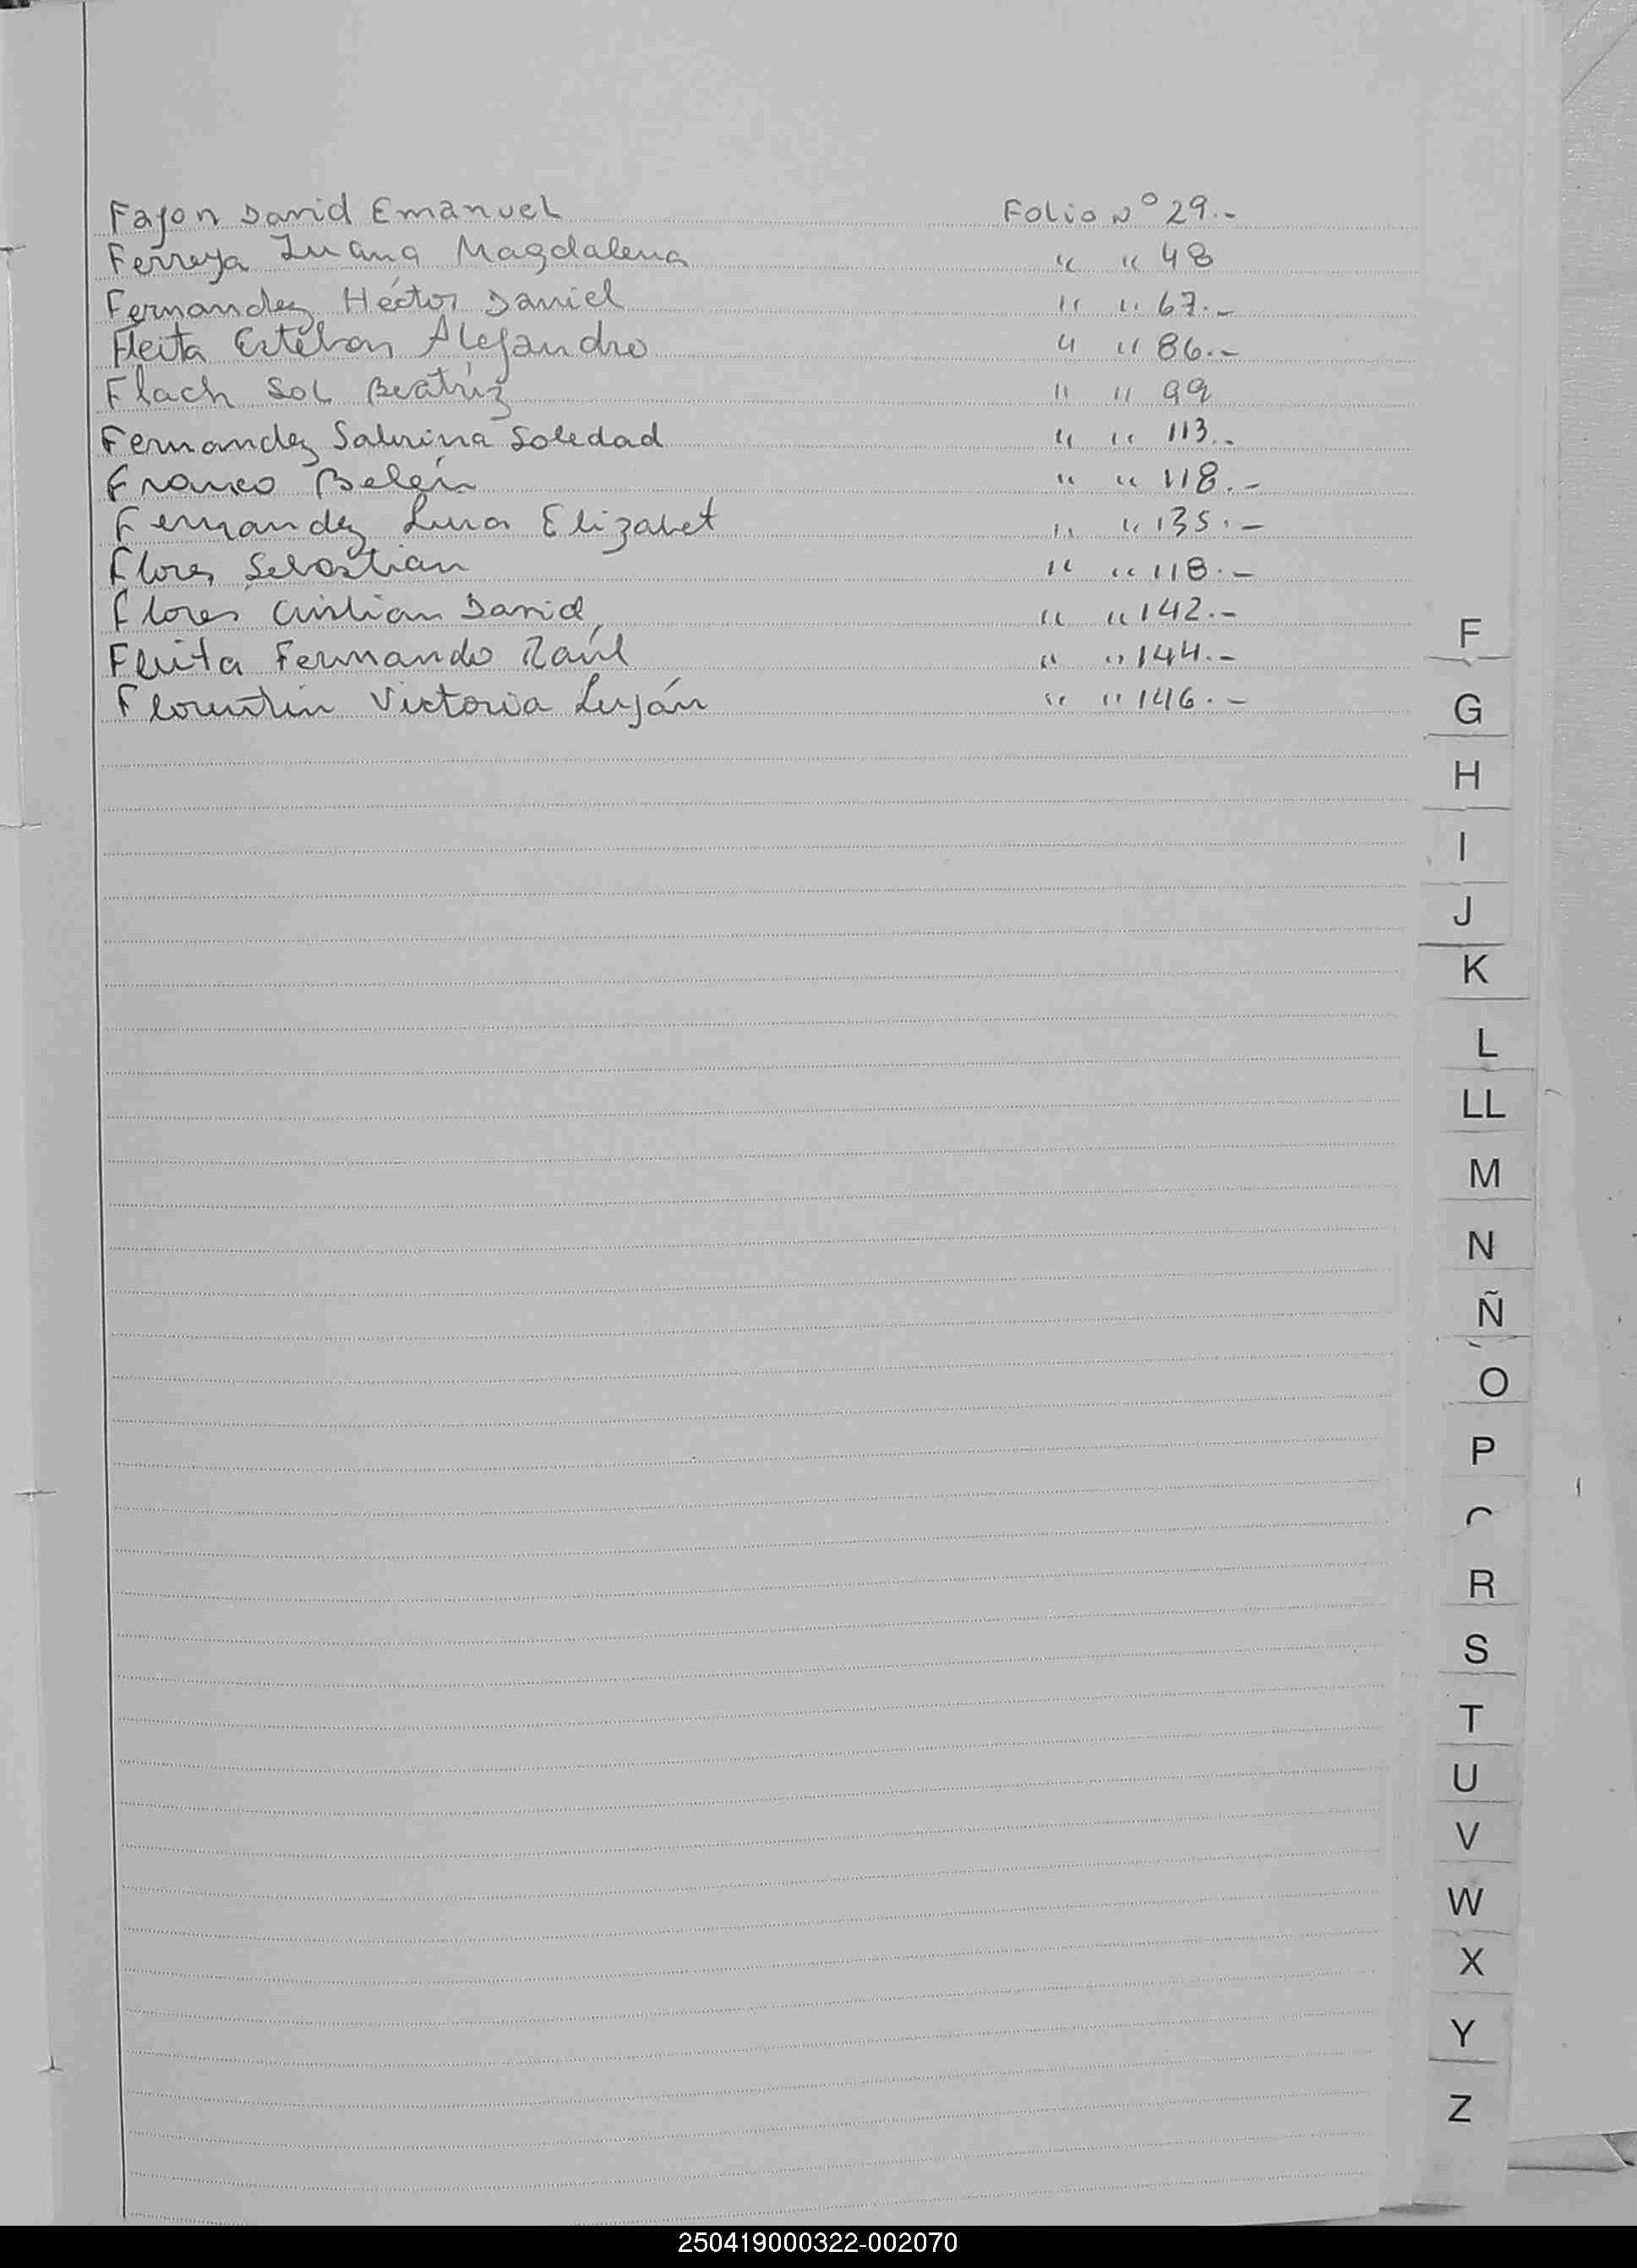 Fajon David Emanuel Folio Nº 29.-
Ferreya Luana Magdalena " " 48
Fernandez Héctor Daniel " " 67.-
Fleita Esteban Alejandro " " 86.-
Flach Sol Beatríz " " 99
Fernandez Sabrina Soledad " " 113.-
Franco Belén " " 118.-
Fernandez Luna Elizabet " " 135.-
Flores Sebastian " " 118.-
Flores Cristian David " " 142.-
Fleita Fernando Raúl " " 144.-
Florentin Victoria Luján " " 146.-
F
G
H
I
J
K
L
LL
M
N
Ñ
O
P
R
S
T
U
V
W
X
Y
Z
250419000322-002070